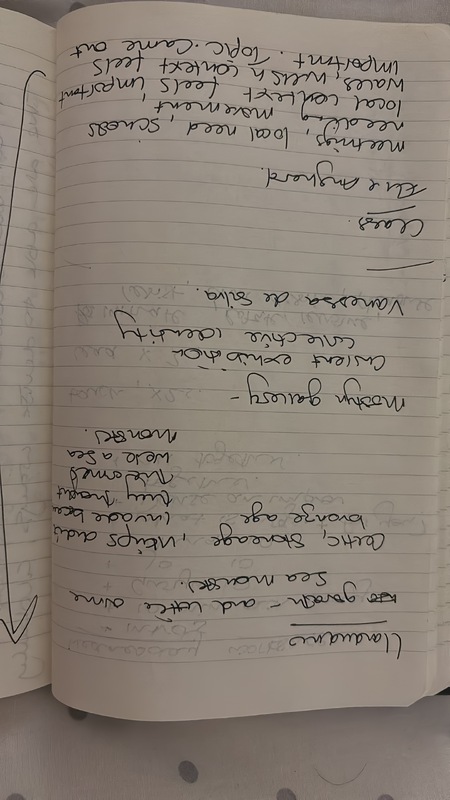 Llandudno
and little orme
sea monsters.
Celtic, stoneage, vikings
bronze age invade
they thought
the ormes
were a sea
monster.
Mostyn gallery -
current exhibition
collective identity
Vanessa da Silva.
Class.
Angharad.
meetings, local need, schools
needing movement,
local context feels important
wales, welsh context feels
important. Topic. Came out